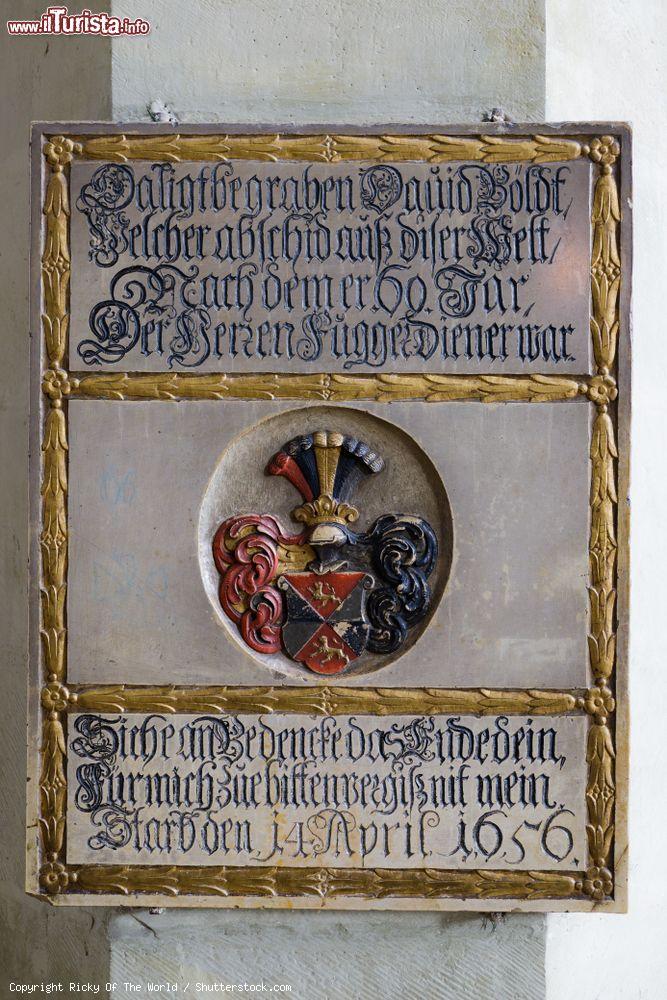 www.ilTurista.info
Da ligt begraben Dauid Böldt,
Welcher abschid auß diser Welt,
Nach dem er 60. Jar,
Der Herren Fugger Diener war.
Sihe an Bedencke das Ende dein,
Fur mich zue bitten vergiß nit mein.
Starb den 14 April 1656.
Copyright Ricky Of The World / Shutterstock.com